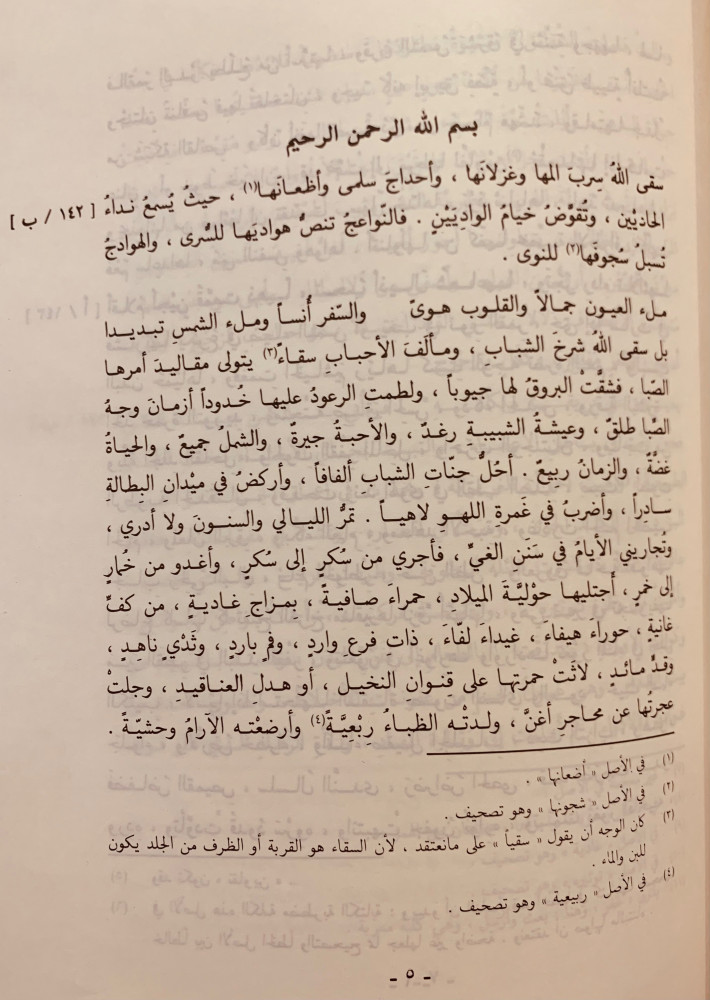 بسم الله الرحمن الرحيم
سقى اللهُ سِربَ المها وغزلانَها ، وأحداجَ سلمى وأظعانَها(١) ، حيثُ يُسمعُ نداءُ [ ١٤٢ / ب ]
الحاديْين ، وتُقوَّضُ خيامُ الوادِيَيْنِ . فالنَّواعجُ تنصُّ هواديَها للسُّرى ، والهوادجُ
تُسبلُ سُجوفَها(٢) للنوى .
ملء العيون جمالاً والقلوب هوىً والسّفر أُنساً وملء الشمسِ تبديدا
بل سقى اللهُ شرخَ الشبابِ ، ومألفَ الأحبابِ سقاءً(٣) يتولى مقاليدَ أمرها
الصّبا ، فشقَّتْ البروقُ لها جيوباً ، ولطمتِ الرعودُ عليها خُدوداً أزمانَ وجهُ
الصِّبا طلقٌ ، وعيشةُ الشبيبةِ رغدٌ ، والأحبةُ جيرةٌ ، والشملُ جميعٌ ، والحياةُ
غضَّةٌ ، والزمانُ ربيعٌ . أحُلُّ جنّاتِ الشبابِ ألفافاً ، وأركضُ في ميْدانِ البِطالةِ
سادِراً ، وأضربُ في غَمرةِ اللهوِ لاهياً . تمرُّ الليالي والسنونَ ولا أدري ،
وتُجاريني الأيامُ في سَنَنِ الغيِّ ، فأجري من سُكرٍ إلى سُكرٍ ، وأغدو من خُمارٍ
إلى خمرٍ ، أجتليها حوْليَّةَ الميلادِ ، حمراءَ صافيةً ، بِمزاجِ غاديةٍ ، من كفِّ
غانيةٍ ، حوراءَ هيفاءَ ، غيداءَ لفّاءَ ، ذاتِ فرعٍ واردٍ ، وفمٍ باردٍ ، وثَدْيٍ ناهِدٍ ،
وقدٍّ مائدٍ ، لاثَتْ خمرتها على قِنوانِ النخيلِ ، أو هدلِ العناقيدِ ، وجلتْ
عجرتُها عن محاجرِ أغنَّ ، ولدتْه الظباءُ رِبْعِيَّةً(٤) وأرضعْته الآرامُ وحشيّةً .
(١) في الأصل « أضعانها » .
(٢) في الأصل « شجونها » وهو تصحيف .
(٣) كان الوجه أن يقول « سقياً » على مانعتقد ، لأن السقاء هو القربة أو الظرف من الجلد يكون
للبن والماء .
(٤) في الأصل « ربيعية » وهو تصحيف .
- ٥ -